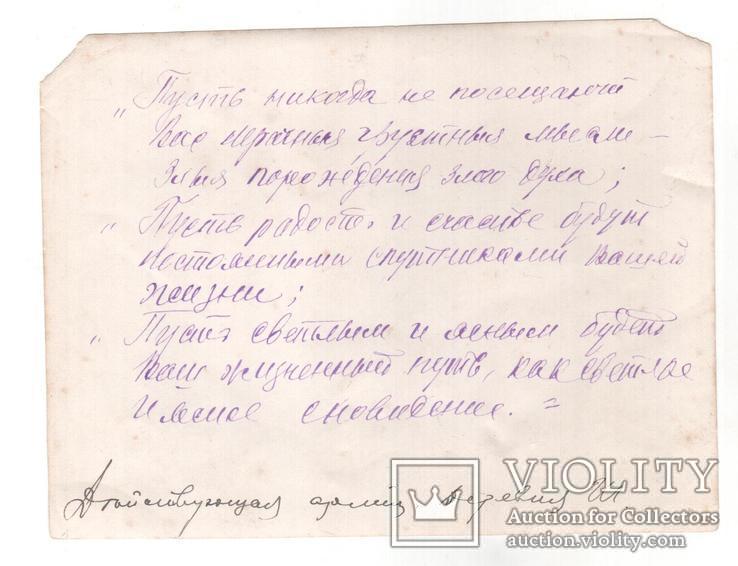 „ Пусть никогда не посещают
Вас мрачныя, грустныя мысли –
Злыя порождения злого духа;
„ Пусть радость и счастье будут
постоянными спутниками вашей
жизни;
„ Пусть светлым и ясным будет
Ваш жизненный путь, как светлое
и ясное сновидение. =
Действующая армия деревня
VIOLITY
Auction for Collectors
auction.violity.com